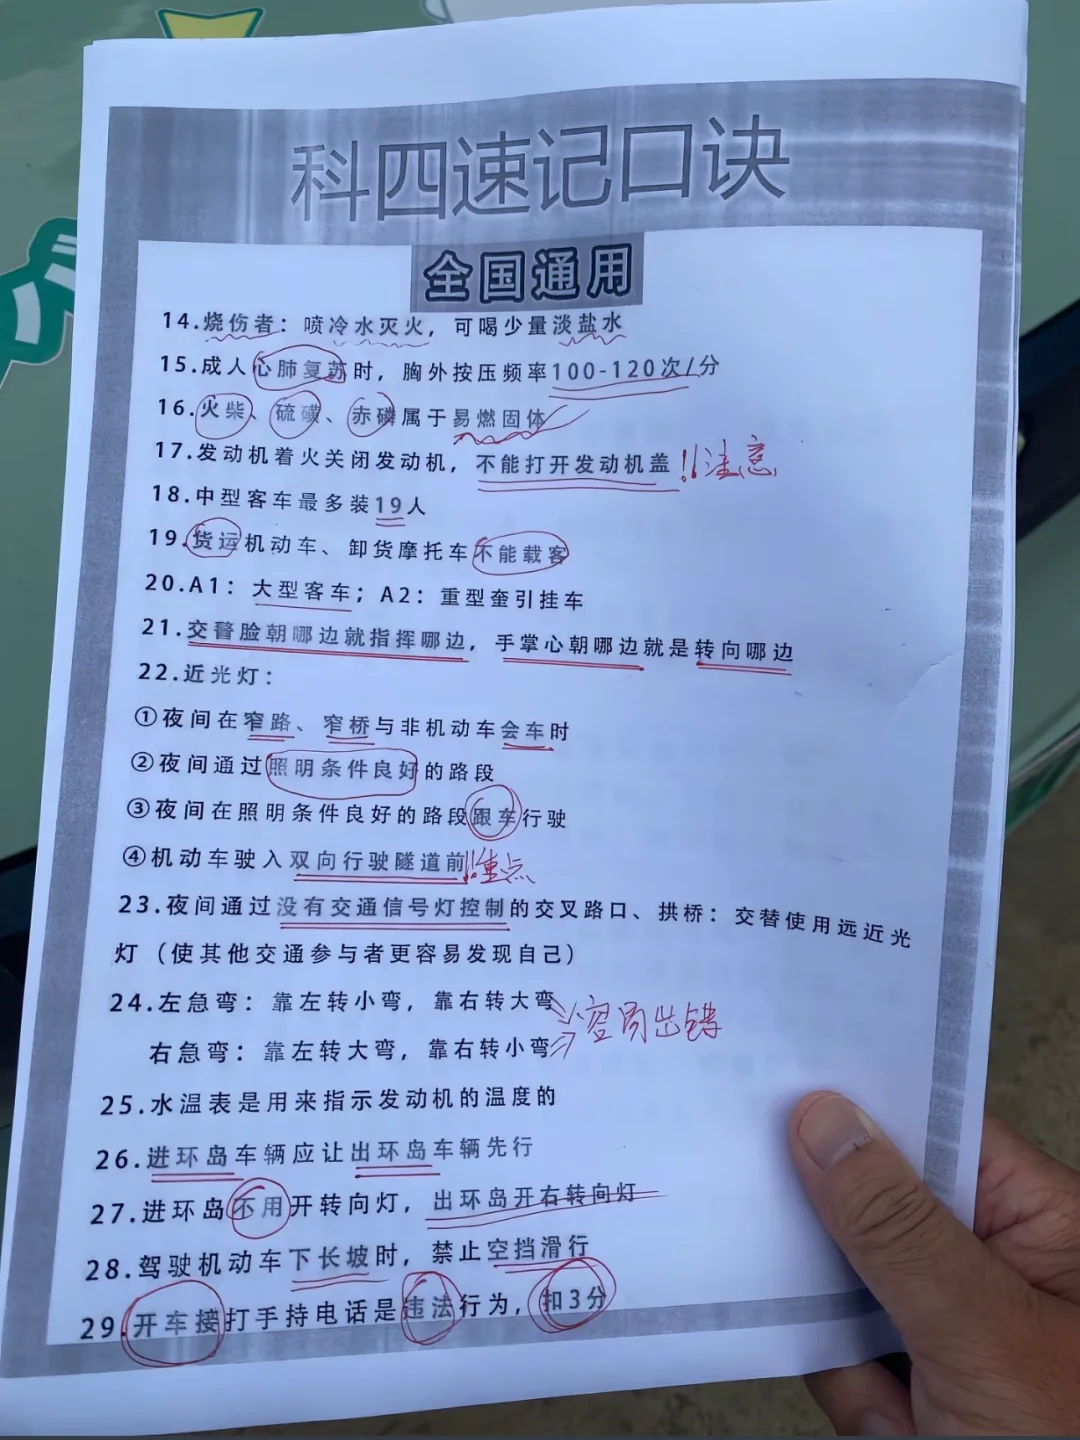 科四速记口诀
全国通用
14.烧伤者：喷冷水灭火，可喝少量淡盐水
15.成人心肺复苏时，胸外按压频率100-120次/分
16.火柴、硫磺、赤磷属于易燃固体
17.发动机着火关闭发动机，不能打开发动机盖!!注意
18.中型客车最多装19人
19.货运机动车、卸货摩托车不能载客
20.A1：大型客车；A2：重型牵引挂车
21.交警脸朝哪边就指挥哪边，手掌心朝哪边就是转向哪边
22.近光灯：
①夜间在窄路、窄桥与非机动车会车时
②夜间通过照明条件良好的路段
③夜间在照明条件良好的路段跟车行驶
④机动车驶入双向行驶隧道前!!重点
23.夜间通过没有交通信号灯控制的交叉路口、拱桥：交替使用远近光
灯（使其他交通参与者更容易发现自己）
24.左急弯：靠左转小弯，靠右转大弯
容易出错
右急弯：靠左转大弯，靠右转小弯
25.水温表是用来指示发动机的温度的
26.进环岛车辆应让出环岛车辆先行
27.进环岛不用开转向灯，出环岛开右转向灯
28.驾驶机动车下长坡时，禁止空挡滑行
29.开车接打手持电话是违法行为，扣3分